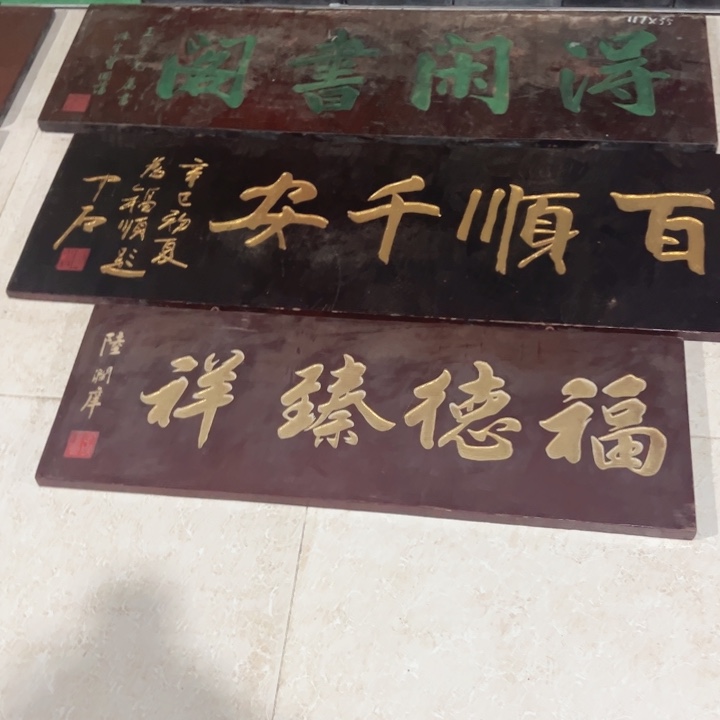 117X35
淂閑書閣
百順千安
辛巳初夏
為福順題
福德臻祥
陸潤庠